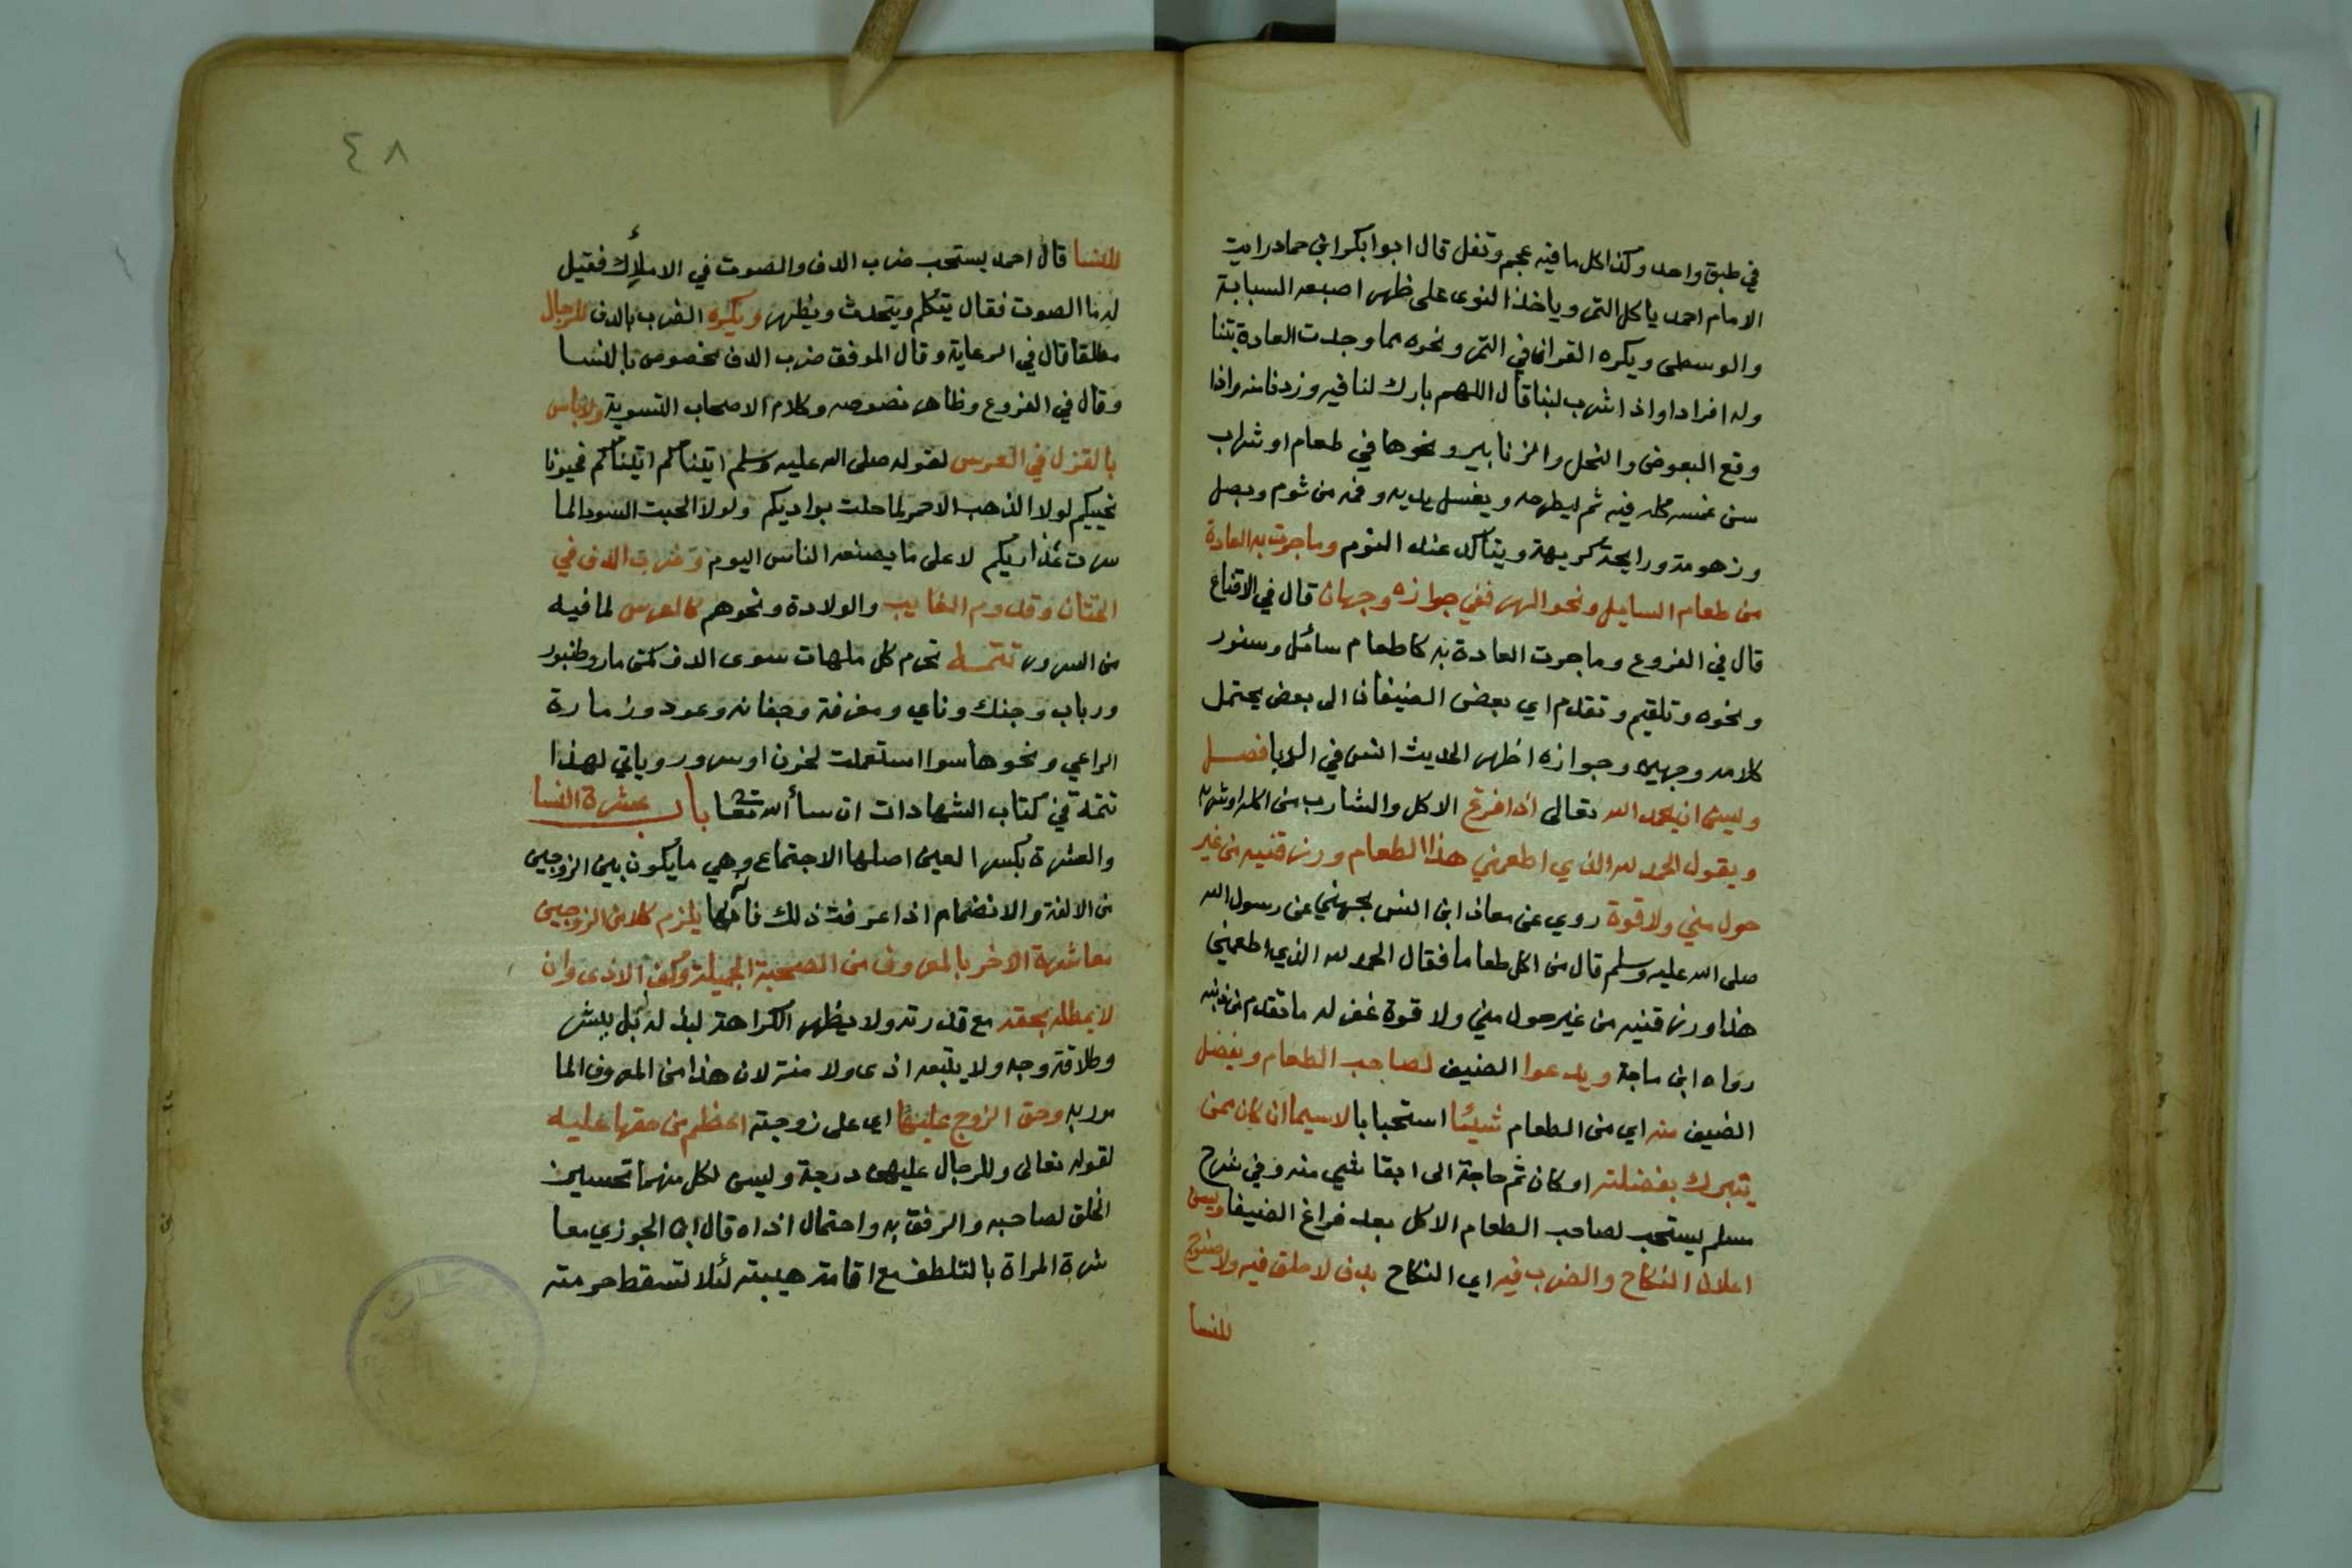 في طبق واحد وكذا كل ما فيه عجم وتفل قال ابوا بكر ابن حماد رايت
الامام احمد ياكل التمر وياخذ النوى على ظهر اصبعه السبابة
والوسطى ويكره القران في التمر ونحوه مما وجدت العادة بتنا
وله افرادا واذا شرب لبنا قال اللهم بارك لنا فيه وزدنا منه واذا
وقع البعوض والنحل والزنابير ونحوها في طعام او شراب
سن غمسه كله فيه ثم ليطرحه ويغسل يديه وفمه من ثوم وبصل
وزهومة ورايحة كريهة ويتاكد عند النوم وما جرت به العادة
من طعام السايل ونحو الهر ففي جوازه وجهان قال في الاقناع
قال في الفروع وما جرت العادة به كاطعام سائل وسنور
ونحوه وتلقيم وتقديم اي بعض الضيفان الى بعض يحتمل
كلامه وجهين وجوازه اظهر لحديث انس في الدبا فصل
ويسن ان يحمد الله تعالى اذا فرغ الاكل والشارب من اكله او شربه
ويقول الحمد لله الذي اطعمني هذا الطعام ورزقنيه من غير
حول مني ولا قوة روي عن معاذ ابن انس الجهني عن رسول الله
صلى الله عليه وسلم قال من اكل طعاما فقال الحمد لله الذي اطعمني
هذا ورزقنيه من غير حول مني ولا قوة غفر له ما تقدم من ذنبه
رواه ابن ماجة ويدعوا الضيف لصاحب الطعام ويفضل
الضيف منه اي من الطعام شيئا استحبابا لاسيما ان كان ممن
يتبرك بفضلته او كان ثم حاجة الى ابقا شي منه وفي شرح
مسلم يستحب لصاحب الطعام الاكل بعد فراغ الضيفان ويسن
اعلان النكاح والضرب فيه اي النكاح بدف لا حلق فيه ولا صنوج
للنسا
٤٨
للنسا قال احمد يستحب ضرب الدف والصوت في الاملاك فقيل
له ما الصوت فقال يتكلم ويتحدث ويظهر ويكره الضرب بالدف للرجال
مطلقا قال في الرعاية وقال الموفق ضرب الدف مخصوص بالنسا
وقال في الفروع وظاهر نصوصه وكلام الاصحاب التسوية ولا باس
بالغزل في العرس لقوله صلى الله عليه وسلم اتيناكم اتيناكم فحيونا
نحييكم لولا الذهب الاحمر لما حلت بواديكم ولولا الحبت السودا لما
سرت عذاريكم لا على ما يصنعه الناس اليوم وضرب الدف في
الختان وقدوم الغايب والولادة ونحوهم كالعرس لما فيه
من السرور تتمة تحرم كل ملهات سوى الدف كمزمار وطنبور
ورباب وجنك وناي ومعزفة وجفانه وعود وزمارة
الراعي ونحوها سوا استعملت لحزن او سرور وياتي لهذا
تتمة في كتاب الشهادات ان سأ الله تعا باب عشرة النسا
والعشرة بكسر العين اصلها الاجتماع وهي ما يكون بين الزوجين
من الالفة والانضمام اذا عرفت ذلك فانها يلزم كلا من الزوجين
معاشرة الاخر بالمعروف من الصحبة الجميلة وكف الاذى وان
لا يمطله بحقه مع قدرته ولا يظهر الكراهة لبذله بل ببشر
وطلاقة وجه ولا يتبعه اذى ولا منة لان هذا من المعروف الما
مور به وحق الزوج عليها اي على زوجته اعظم من حقها عليه
لقوله تعالى وللرجال عليهن درجة وليس لكل منهما تحسين
الخلق لصاحبه والرفق به واحتمال اذاه قال ابن الجوزي معا
شرة المراة بالتلطف مع اقامة هيبته لئلا تسقط حرمته